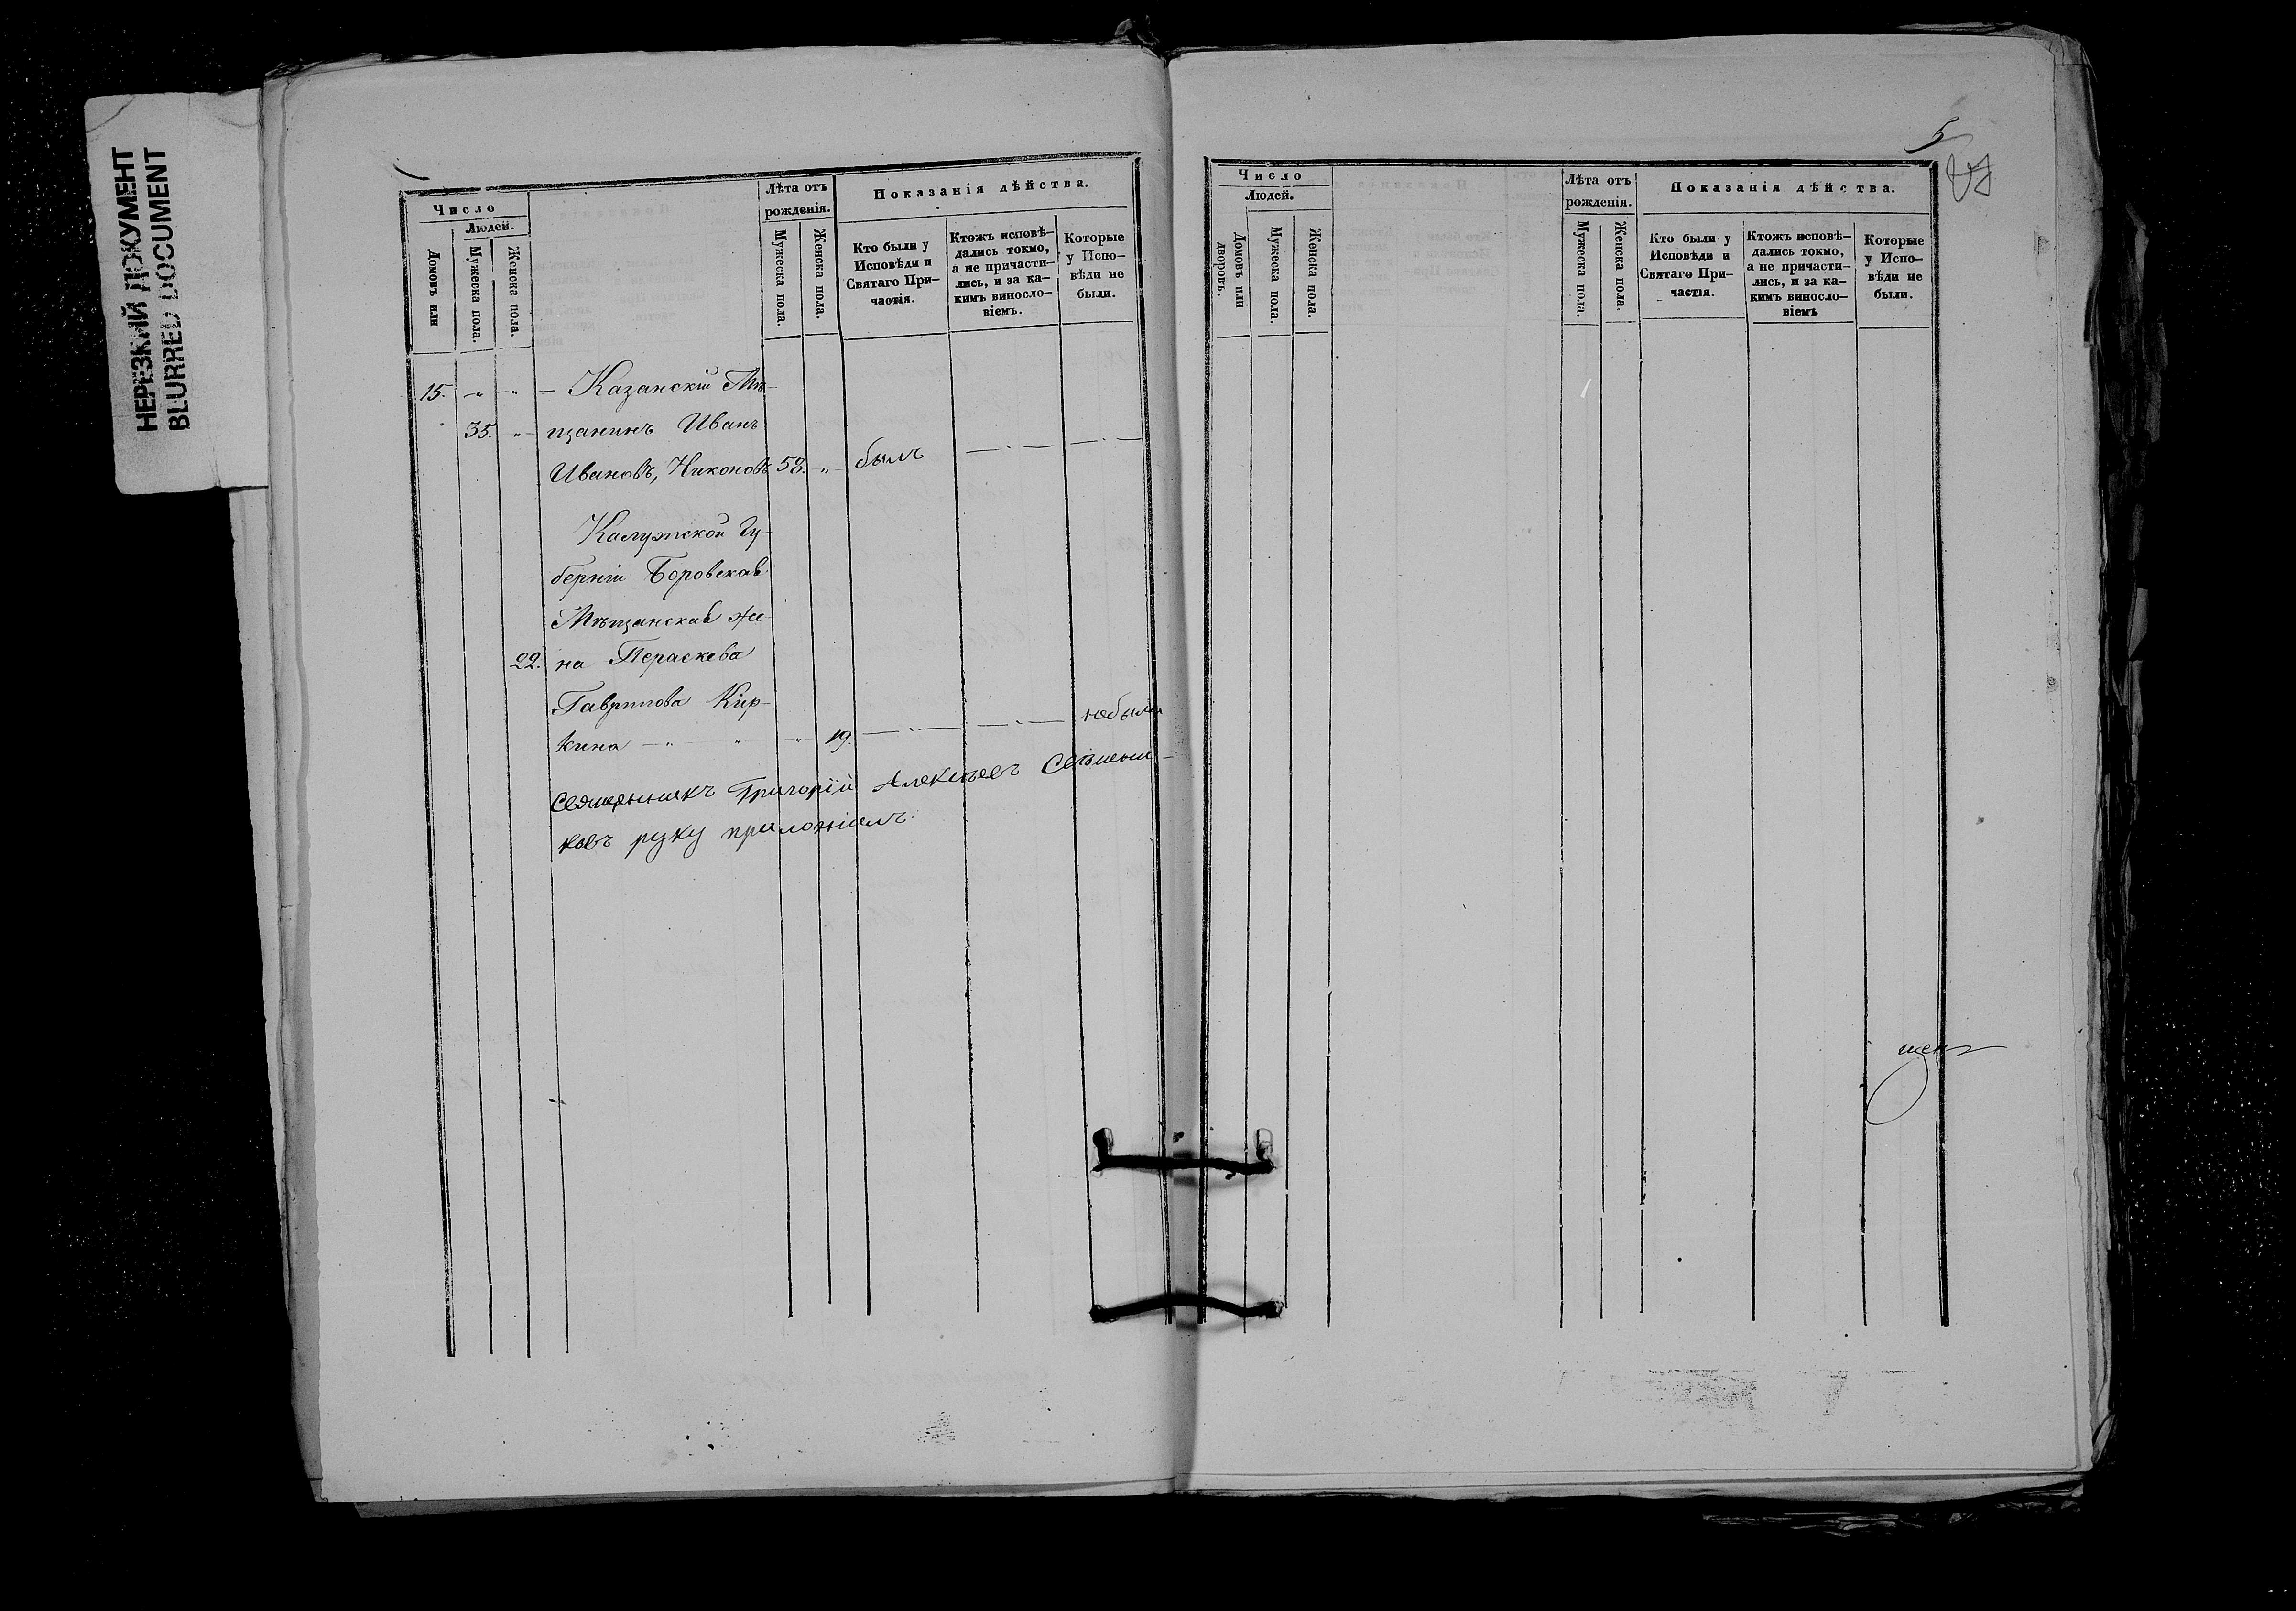 НЕРЕЗКИЙ ДОКУМЕНТ
BLURRED DOCUMENT
Число
Людей.
Домовъ или
Мужеска пола.
Женска пола.
Лѣта отъ
рожденія.
Мужеска пола.
Женска пола.
Показанія дѣйства.
Кто были у
Исповѣди и
Святаго При-
частія.
Ктожъ исповѣ-
дались токмо,
а не причасти-
лись, и за ка-
кимъ винosло-
віемъ.
Которые
у Испо-
вѣди не
были.
15. -"- -"- - Казанскій Мѣ-
35. "- щанинъ Иванъ
Ивановъ, Никоновъ 58. -"- былъ —.— —.—
Калужской Гу-
берніи Боровская
Мѣщанская же-
22. на Параскева
Гаврилова Кир-
кина —"— " —"— 19. —.— —.— не была
Священникъ Григорій Алексѣевъ
ковъ руку приложилъ.
5
Число
Людей.
Домовъ или
дворовъ.
Мужеска пола.
Женска пола.
Лѣта отъ
рожденія.
Мужеска пола.
Женска пола.
Показанія дѣйства.
Кто были у
Исповѣди и
Святаго При-
частія.
Ктожъ исповѣ-
дались токмо,
а не причасти-
лись, и за ка-
кимъ винoсло-
віемъ
Которые
у Испо-
вѣди не
были.